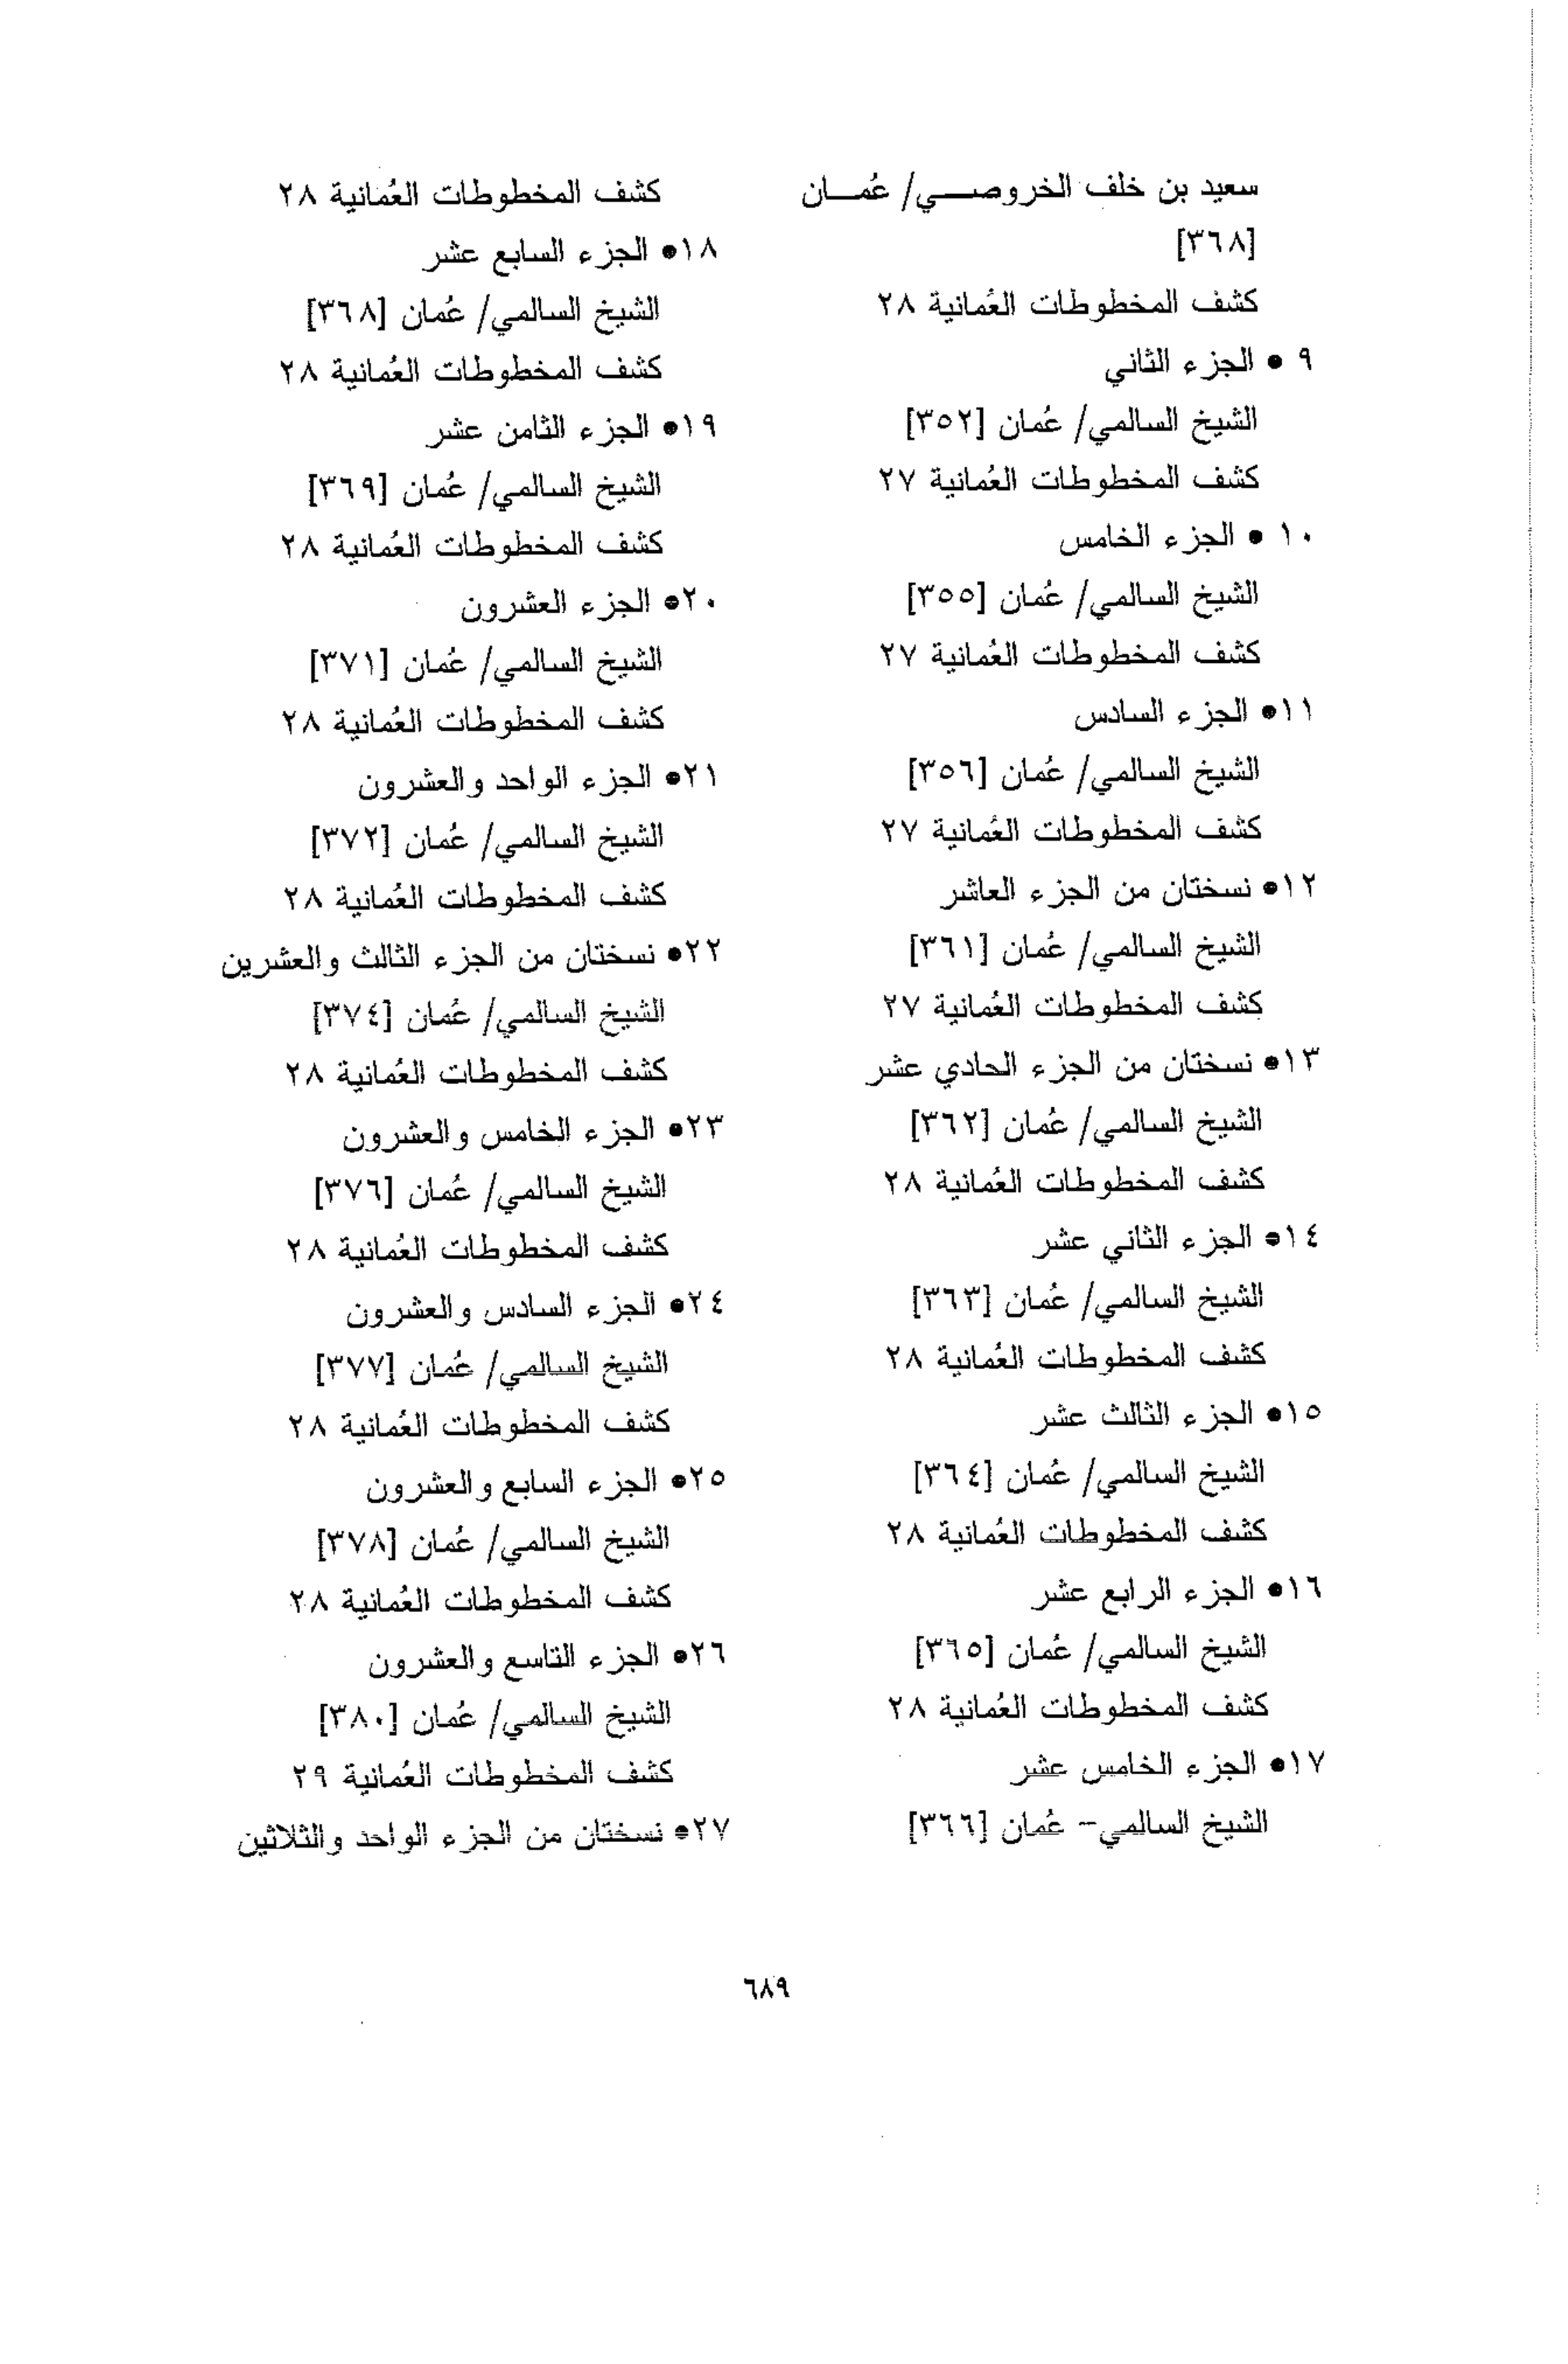 سعيد بن خلف الخروصـــي/ عُمـــان
[٣٦٨]
كشف المخطوطات العُمانية ٢٨
٩ • الجزء الثاني
الشيخ السالمي/ عُمان [٣٥٢]
كشف المخطوطات العُمانية ٢٧
١٠ • الجزء الخامس
الشيخ السالمي/ عُمان [٣٥٥]
كشف المخطوطات العُمانية ٢٧
١١• الجزء السادس
الشيخ السالمي/ عُمان [٣٥٦]
كشف المخطوطات العُمانية ٢٧
١٢• نسختان من الجزء العاشر
الشيخ السالمي/ عُمان [٣٦١]
كشف المخطوطات العُمانية ٢٧
١٣• نسختان من الجزء الحادي عشر
الشيخ السالمي/ عُمان [٣٦٢]
كشف المخطوطات العُمانية ٢٨
١٤• الجزء الثاني عشر
الشيخ السالمي/ عُمان [٣٦٣]
كشف المخطوطات العُمانية ٢٨
١٥• الجزء الثالث عشر
الشيخ السالمي/ عُمان [٣٦٤]
كشف المخطوطات العُمانية ٢٨
١٦• الجزء الرابع عشر
الشيخ السالمي/ عُمان [٣٦٥]
كشف المخطوطات العُمانية ٢٨
١٧• الجزء الخامس عشر
الشيخ السالمي- عُمان [٣٦٦]
كشف المخطوطات العُمانية ٢٨
١٨• الجزء السابع عشر
الشيخ السالمي/ عُمان [٣٦٨]
كشف المخطوطات العُمانية ٢٨
١٩• الجزء الثامن عشر
الشيخ السالمي/ عُمان [٣٦٩]
كشف المخطوطات العُمانية ٢٨
٢٠• الجزء العشرون
الشيخ السالمي/ عُمان [٣٧١]
كشف المخطوطات العُمانية ٢٨
٢١• الجزء الواحد والعشرون
الشيخ السالمي/ عُمان [٣٧٢]
كشف المخطوطات العُمانية ٢٨
٢٢• نسختان من الجزء الثالث والعشرين
الشيخ السالمي/ عُمان [٣٧٤]
كشف المخطوطات العُمانية ٢٨
٢٣• الجزء الخامس والعشرون
الشيخ السالمي/ عُمان [٣٧٦]
كشف المخطوطات العُمانية ٢٨
٢٤• الجزء السادس والعشرون
الشيخ السالمي/ عُمان [٣٧٧]
كشف المخطوطات العُمانية ٢٨
٢٥• الجزء السابع والعشرون
الشيخ السالمي/ عُمان [٣٧٨]
كشف المخطوطات العُمانية ٢٨
٢٦• الجزء التاسع والعشرون
الشيخ السالمي/ عُمان [٣٨٠]
كشف المخطوطات العُمانية ٢٩
٢٧• نسختان من الجزء الواحد والثلاثين
٦٨٩